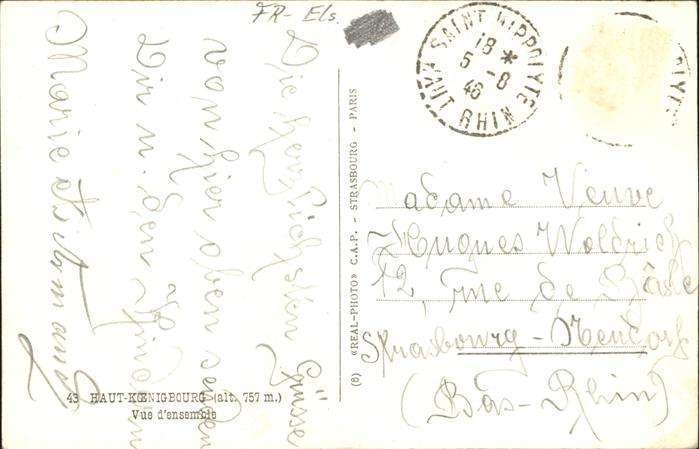 FR- Els.
Die herzlichsten Grüsse
von hier oben senden
Dir u. den Kindern
Marie et Armand
43 HAUT-KŒNIGBOURG (alt. 757 m.)
Vue d'ensemble
(8) «REAL-PHOTO» C.A.P. - STRASBOURG - PARIS
SAINT HIPPOLYTE
18 *
5 -8
46
HAUT RHIN
Madame Veuve
Hugues Woldrich
12, rue de Bâle
Strasbourg-Neudorf
(Bas-Rhin)